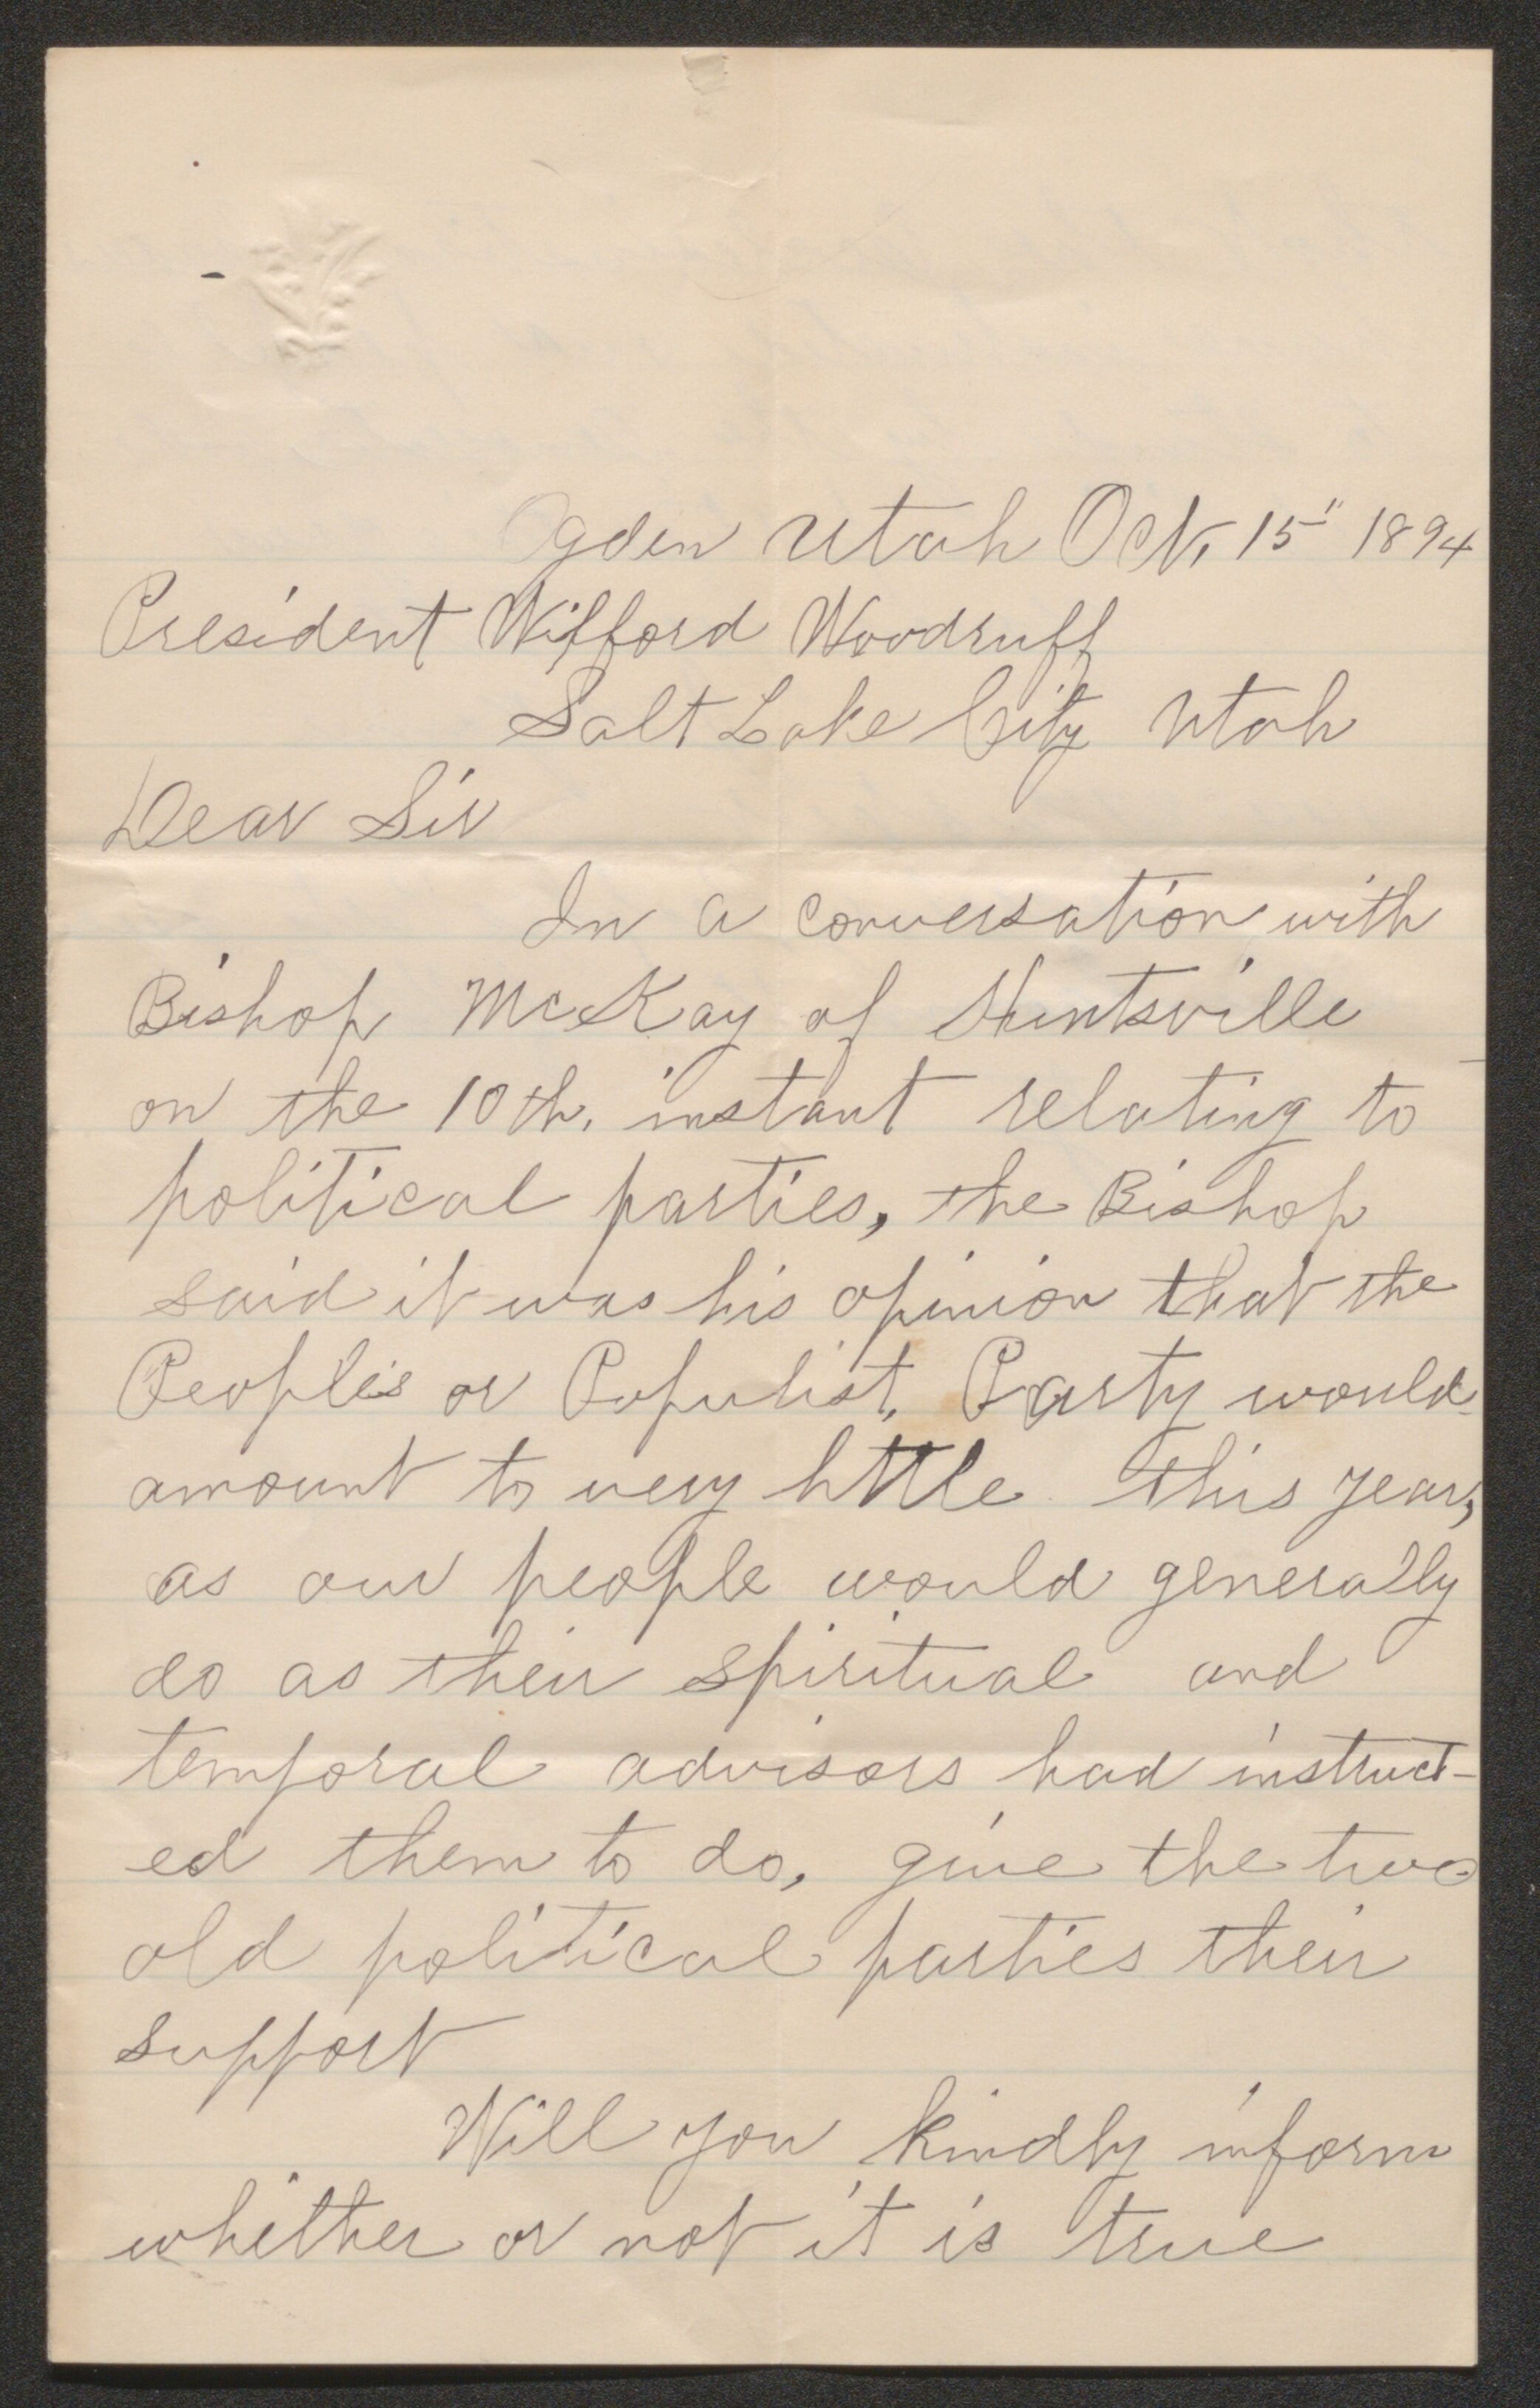 Ogden Utah Oct, 15" 1894
President Wilford Woodruff
Salt Lake City Utah
Dear Sir
In a conversation with
Bishop McKay of Huntsville
on the 10th. instant relating to
political parties, the Bishop
said it was his opinion that the
People's or Populist, Party would
amount to very little this year,
as our people would generally
do as their spiritual and
temporal advisors had instruct-
ed them to do, give the two
old political parties their
support
Will you kindly inform
whether or not it is true